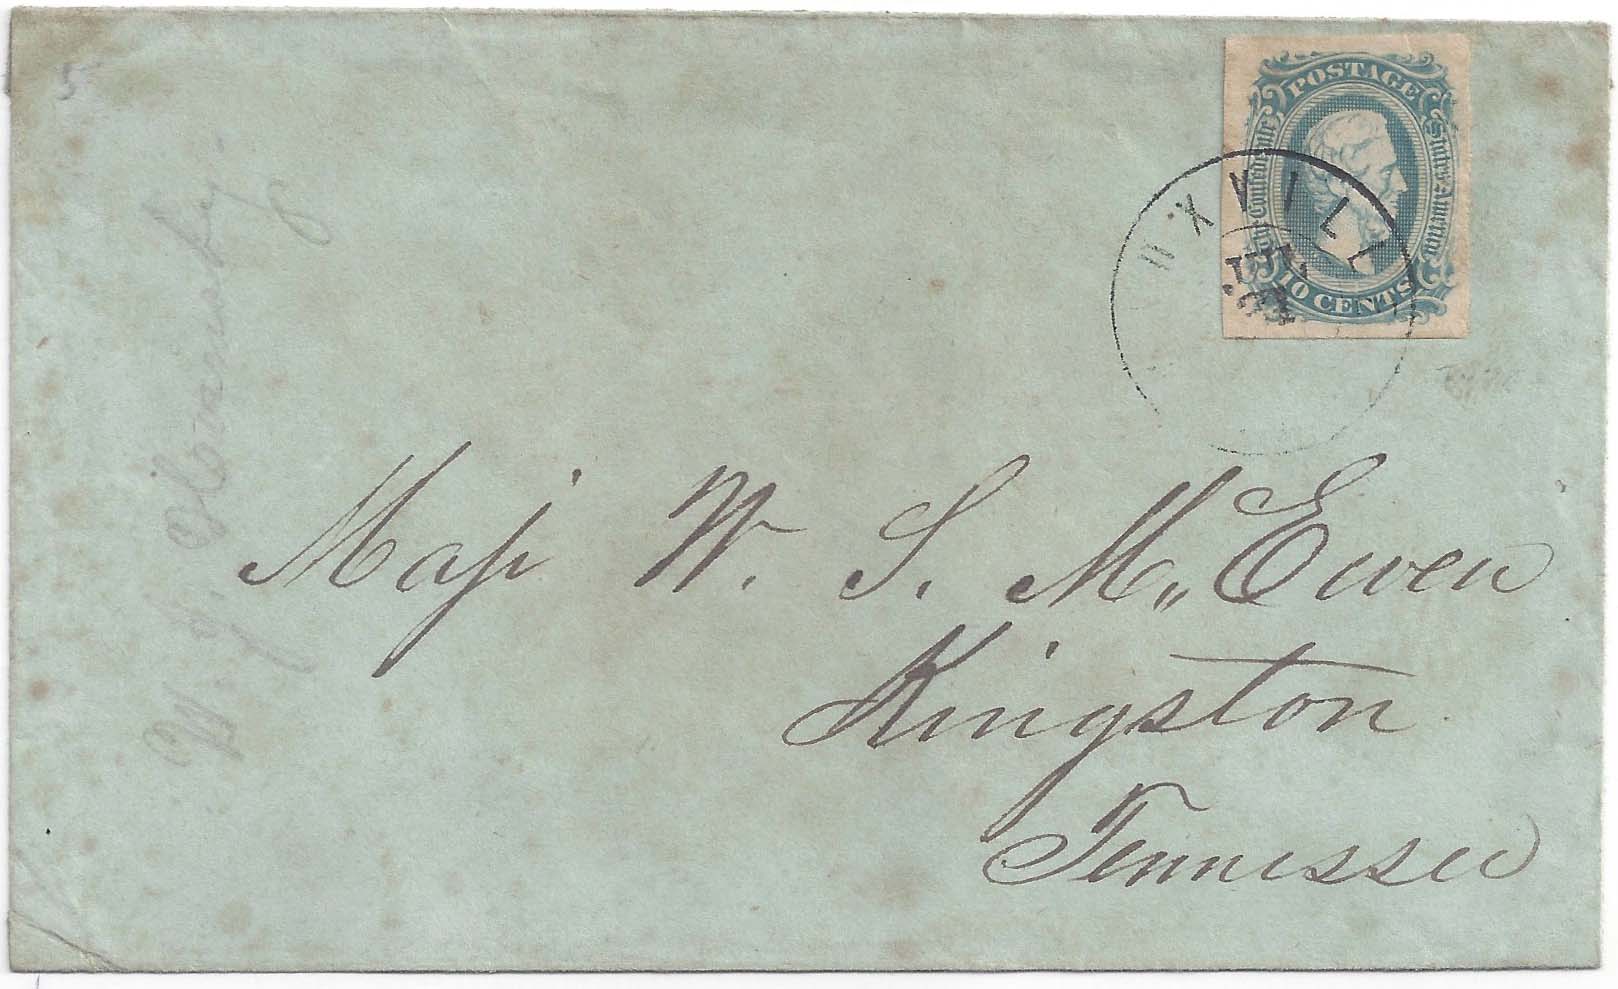 5
POSTAGE
The Confederate States of America
10 CENTS
NOXVILL
Maj W. S. Mc,, Ewen
Kingston
Tennessee